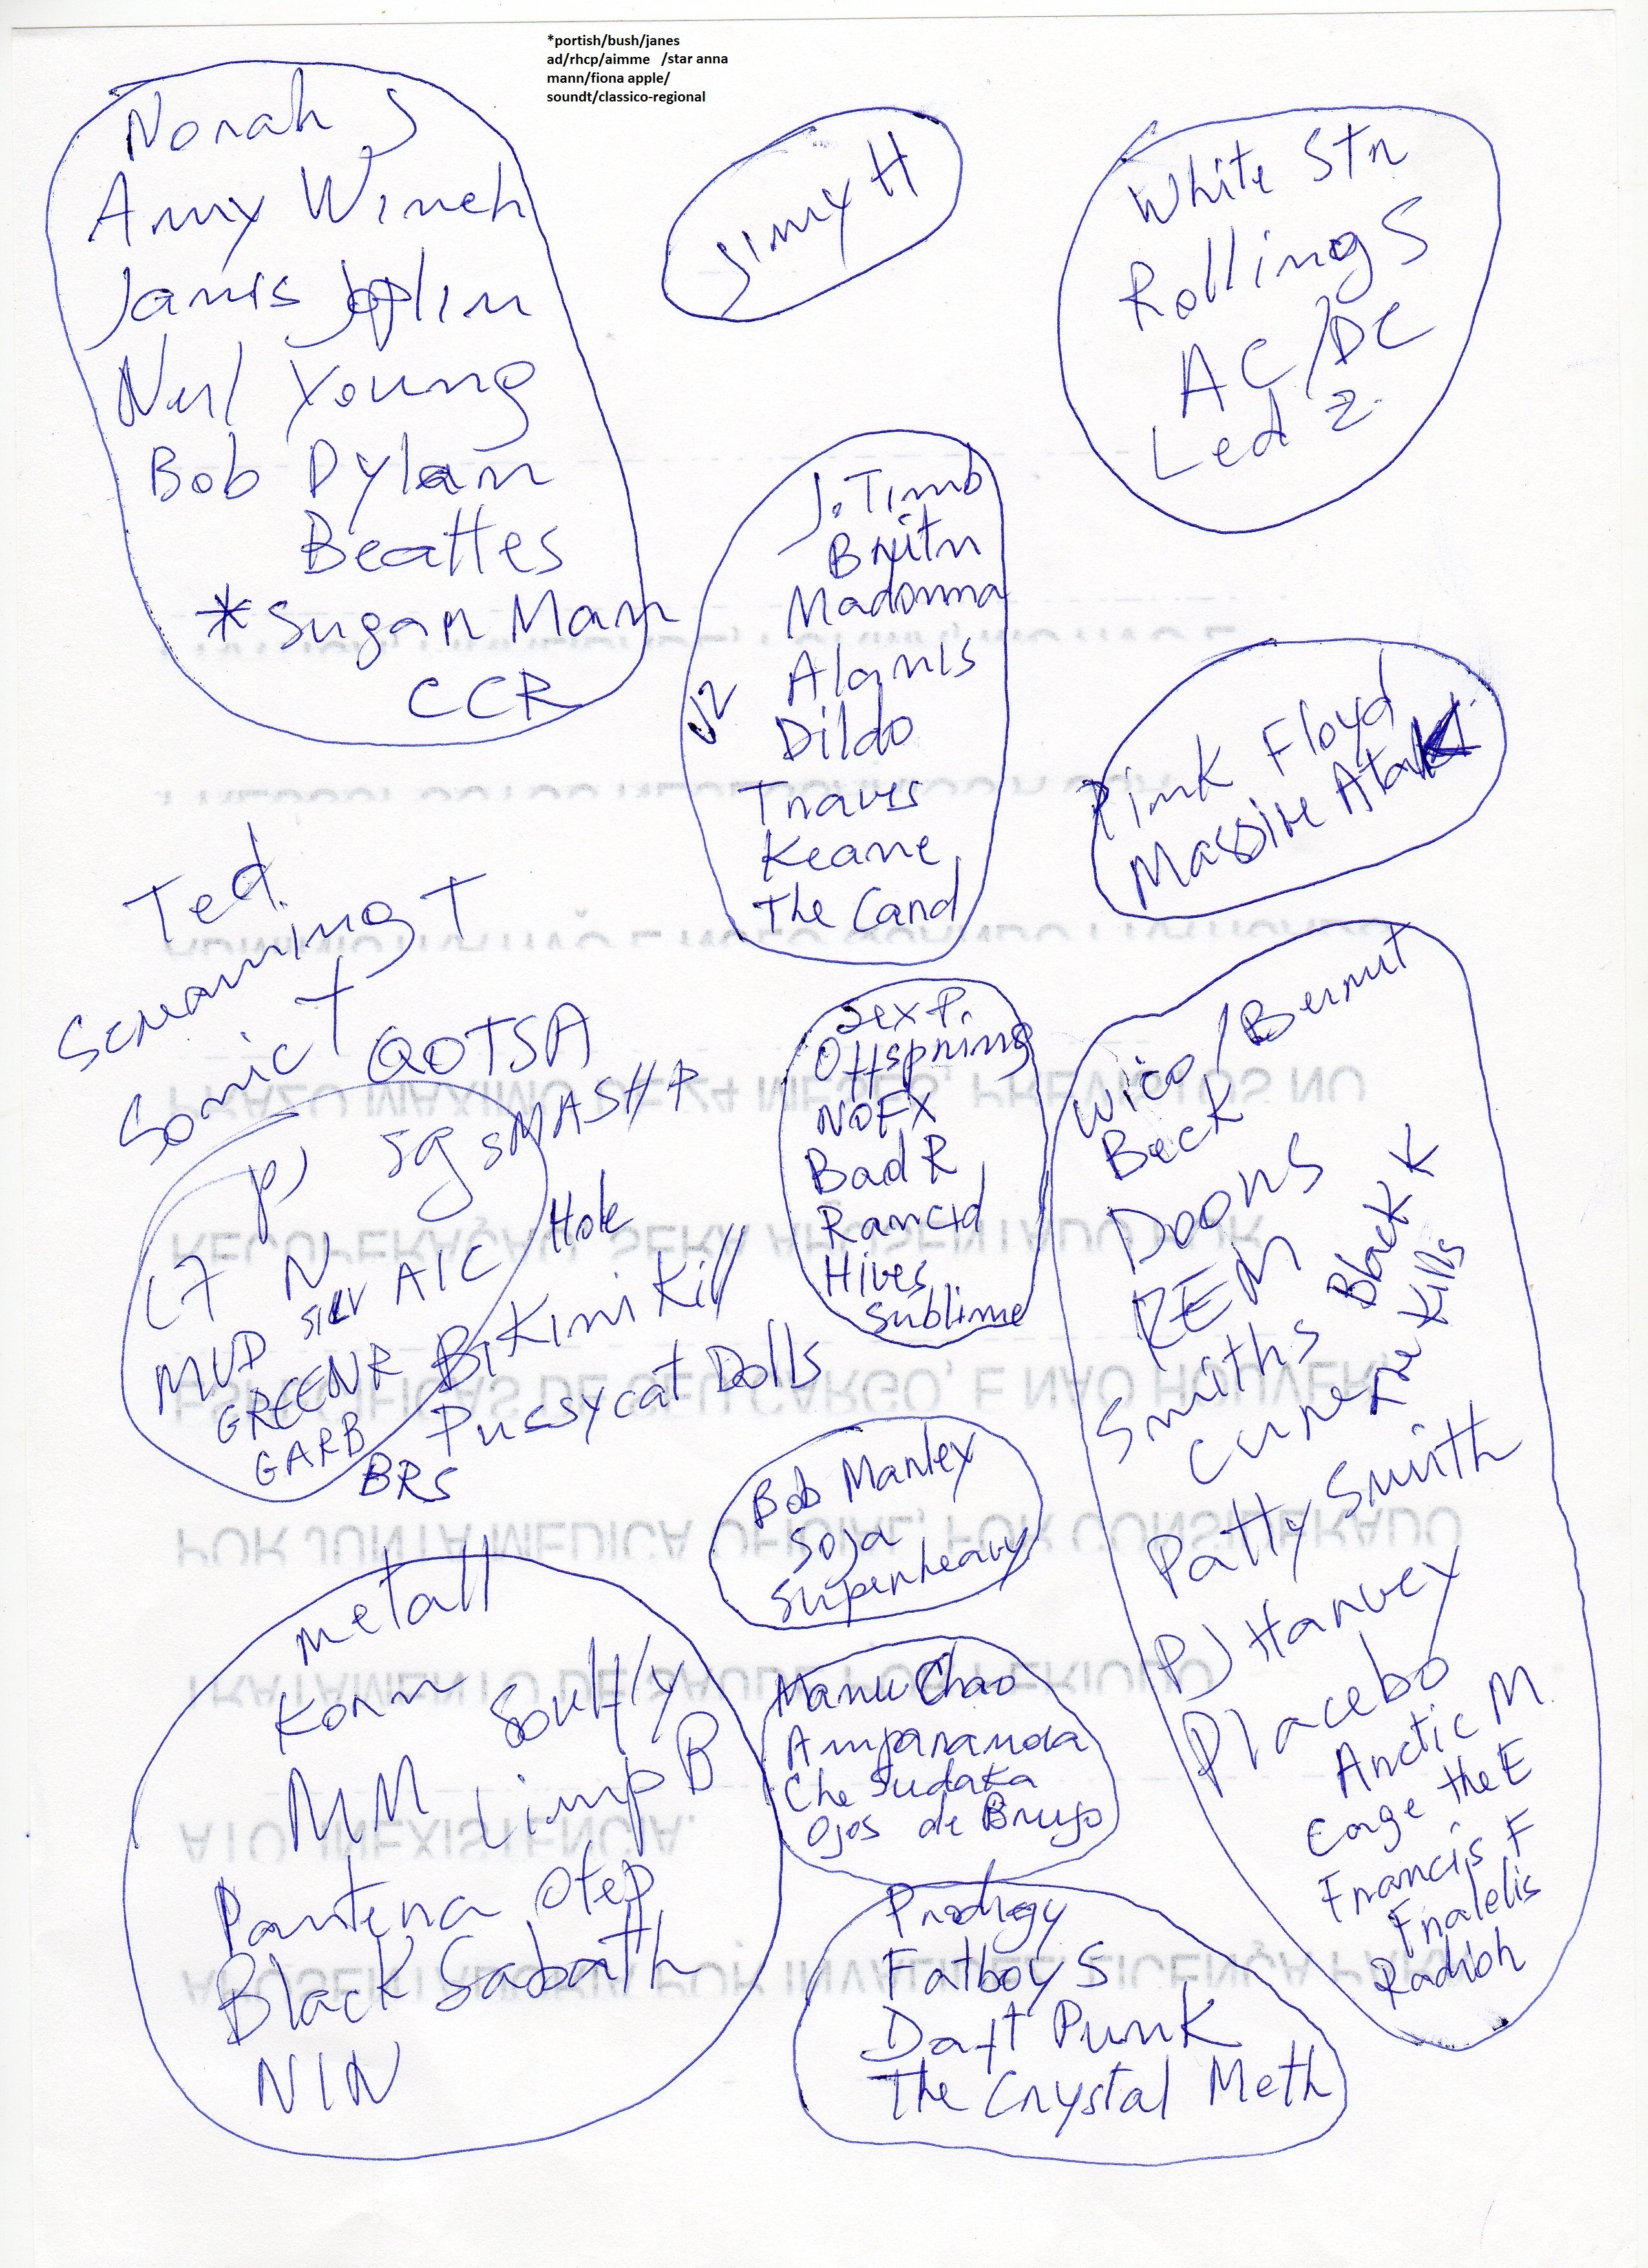 *portish/bush/janes
ad/rhcp/aimme /star anna
mann/fiona apple/
soundt/classico-regional
Norah J
Amy Wineh
Janis Joplin
Neil Young
Bob Dylan
Beattes
*Sugar Man
CCR
Jimy H
White Str
Rolling S
AC/DC
Led Z.
J. Timb
Britn
Madonna
Alanis
U2
Dildo
Traves
Keane
The Card
Pink Floyd
Massive Atak
Ted
Screaming T
Sonic Y
QOTSA
PJ
SG
SMASH P
Hole
L7
N
AIC
MUD
Bikini Kill
GREENR
Pussycat Dolls
GARB
BRS
Sex P.
Offspring
NOFX
Bad R
Rancid
Hives
Sublime
Wico/Bernut
Beck
Doors
REM
Black K
Smiths
Cure
The Kills
Patty Smith
PJ Harvey
Placebo
Arctic M
Cage the E
Francis F
Fratelis
Radioh
Bob Marley
Soja
Superheavy
Metall
Korn
Soulfly
MM
Limp B
Pantera
Otep
Black Sabath
NIN
Manu Chao
Amparanoa
Che Sudaka
Ojos de Brujo
Prodigy
Fatboy S
Daft Punk
The Crystal Meth
PRAZO MÁXIMO DE 24 MESES, PREVISTOS NO
POR JUNTA MÉDICA OFICIAL, POR CONSIDERADO
ATO INEXISTÊNCIA.